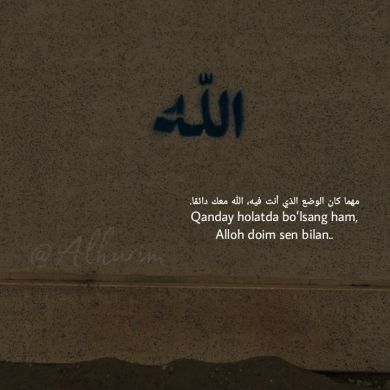 الله
مهما كان الوضع الذي أنت فيه، الله معك دائمًا.
Qanday holatda bo'lsang ham,
Alloh doim sen bilan..
@Alhurim